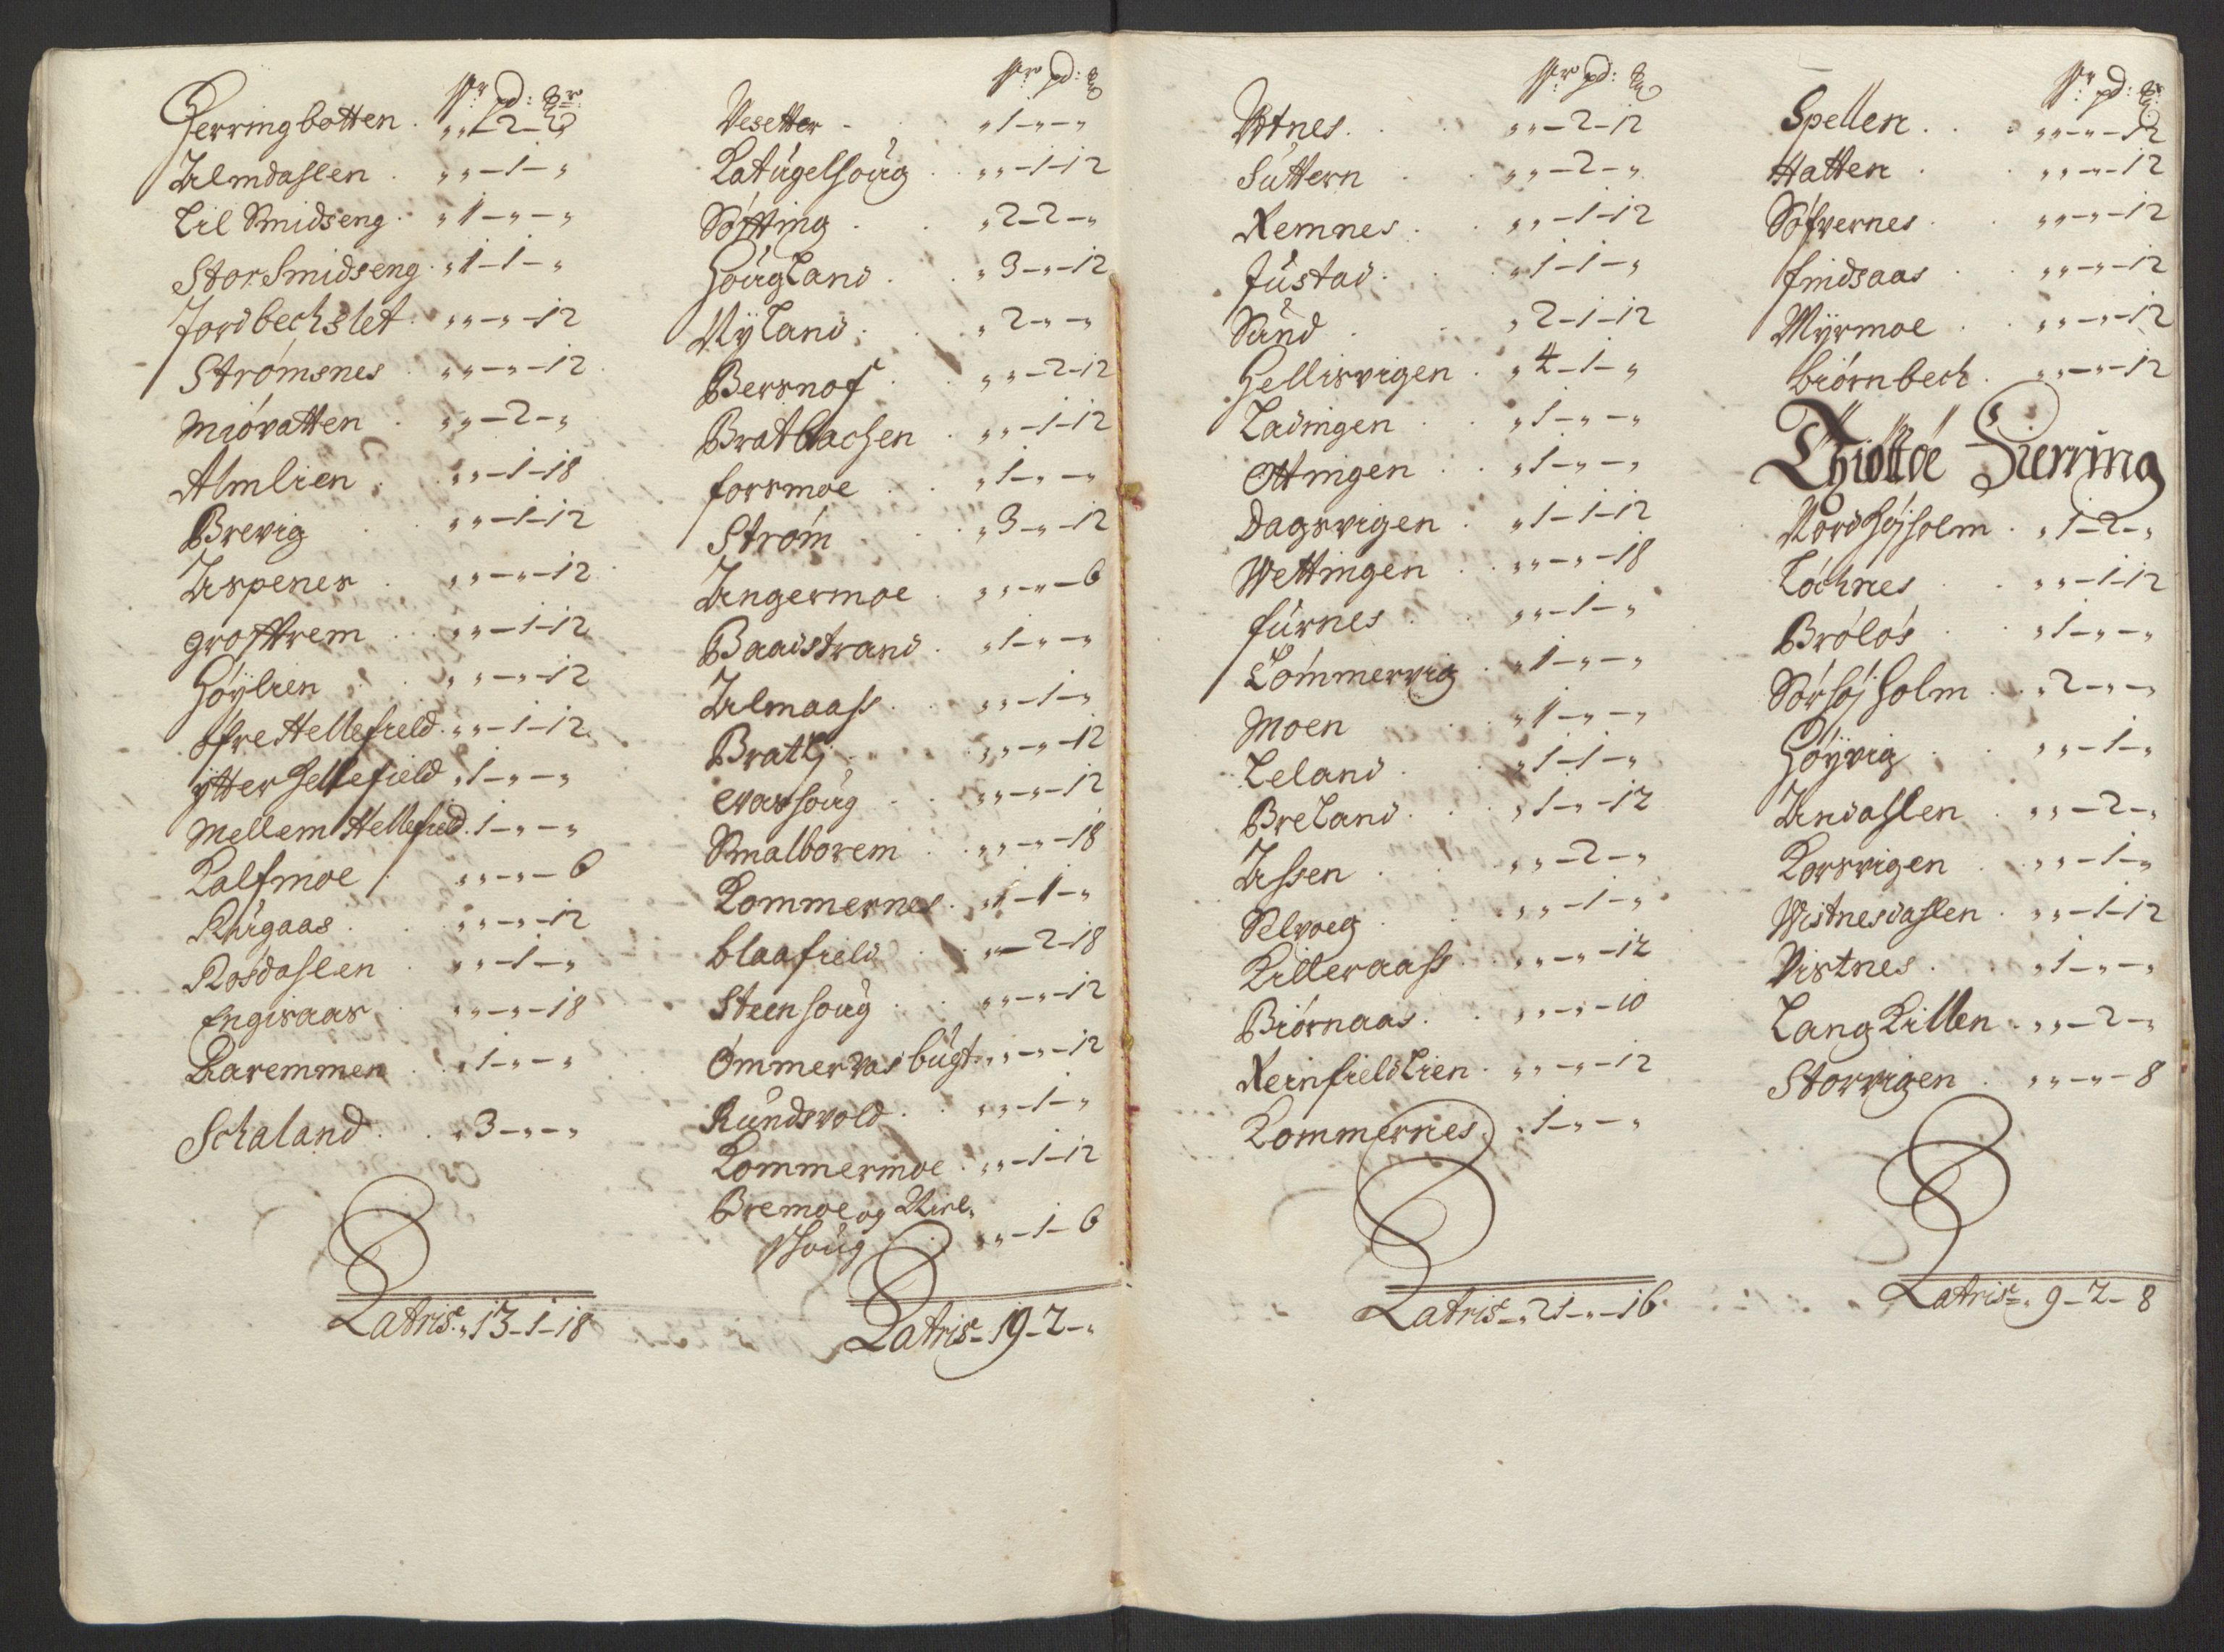 Sp: pd: ℔r
Herringbotten . „ „ - 2 - „
Almdahlen . „ „ - 1 - „
Lil Smidseng . „ 1 - „ - „
Stor Smidseng . „ 1 - 1 - „
Jordbechslet . „ „ - „ - 12
Strømsnes . „ „ - „ - 12
Miøvatten . „ „ - 2 - „
Almlien . „ „ - 1 - 18
Brevig „ „ - 1 - 12
Aspenes . „ „ - „ - 12
Groffrem . „ „ - 1 - 12
Høylien „ „ - „ - 12
Øfre Hellefield . „ „ - 1 - 12
ytter Hellefield „ 1 - „ - „
Mellem Hellefield . 1 - „ - „
Kalfmoe . „ „ - „ - 6
Rhugaas . „ „ - „ - 12
Rosdahlen . „ „ - 1 - „
Engisaas . „ „ - „ - 18
Karemmen . „ 1 - „ - „
Schaland . „ 3 - „ - „
Latris „ 13 - 1 - 18
Sp: pd: ℔
Vesetter . „ 1 - „ - „
Katugelhoug . „ „ - 1 - 12
Søfting . „ 2 - 2 - „
Hougland . „ 3 - „ - 12
Nyland . „ 2 - „ - „
Bersnof . „ „ - 2 - 12
Bratbachen . „ „ - 1 - 12
forsmoe . „ 1 - „ - „
Strøm . „ 3 - „ - 12
Angermoe . „ „ - „ - 6
Baadstrand . „ 1 - „ - „
Almaass . „ „ - 1 - „
Bratli . „ „ - „ - 12
Evashoug . „ „ - „ - 12
Smalborem . „ „ - „ - 18
Kommernes . „ 1 - 1 - „
blaafield . „ „ - 2 - 18
Steenhoug . „ „ - „ - 12
Ommervasbugt . „ „ - „ - 12
Rundsvold . „ „ - 1 - „
Kommermoe . „ „ - 1 - 12
Bremoe og
houg „ „ - 1 - 6
Latris - 19 - 2 - „
Sp: pd: ℔
Votnes . „ „ - 2 - 12
Suttern . „ „ - 2 - „
Remnes . „ „ - 1 - 12
Justad . „ 1 - 1 - „
Sund . „ 2 - 1 - 12
Hellisvigen . „ 4 - 1 - „
Ladingen . „ 1 - „ - „
Ottingen . „ 1 - „ - „
Dagsvigen . „ 1 - 1 - 12
Wettingen . „ „ - „ - 18
furnes . „ „ - 1 - „
Tømmervig . „ 1 - „ - „
Moen . „ 1 - „ - „
Leland . „ 1 - 1 - „
Breland . „ 1 - „ - 12
Assen . „ „ - 2 - „
Selvoeg . „ „ - 1 - „
Killeraass . „ „ - „ - 12
Biørnaas . „ „ - „ - 10
Reinfieldlien . „ „ - „ - 12
Kommernes . „ 1 - „ - „
Latris - „ 21 - „ - 16
Sp: pd: ℔
Spellen . „ „ - „ - 12
Hatten . „ „ - „ - 12
Søfvernes . „ „ - „ - 12
findsaas . „ „ - „ - 12
Myrmoe . „ „ - „ - 12
biørnbech . „ „ - „ - 12
Thiøttøe Fierring
Nordhøjholm . „ 1 - 2 - „
Løchnes . „ „ - 1 - 12
Brøløs . „ 1 - „ - „
Sørhøjholm . „ 2 - „ - „
Høyvig . „ „ - 1 - „
Andahlen . „ „ - 2 - „
Korsvigen . „ „ - 1 - „
Wistnesdahlen . „ „ - 1 - 12
Vistnes . „ 1 - „ - „
Lang Killen . „ „ - 2 - „
Storvigen . „ „ - „ - 8
Latris „ 9 - 2 - 8